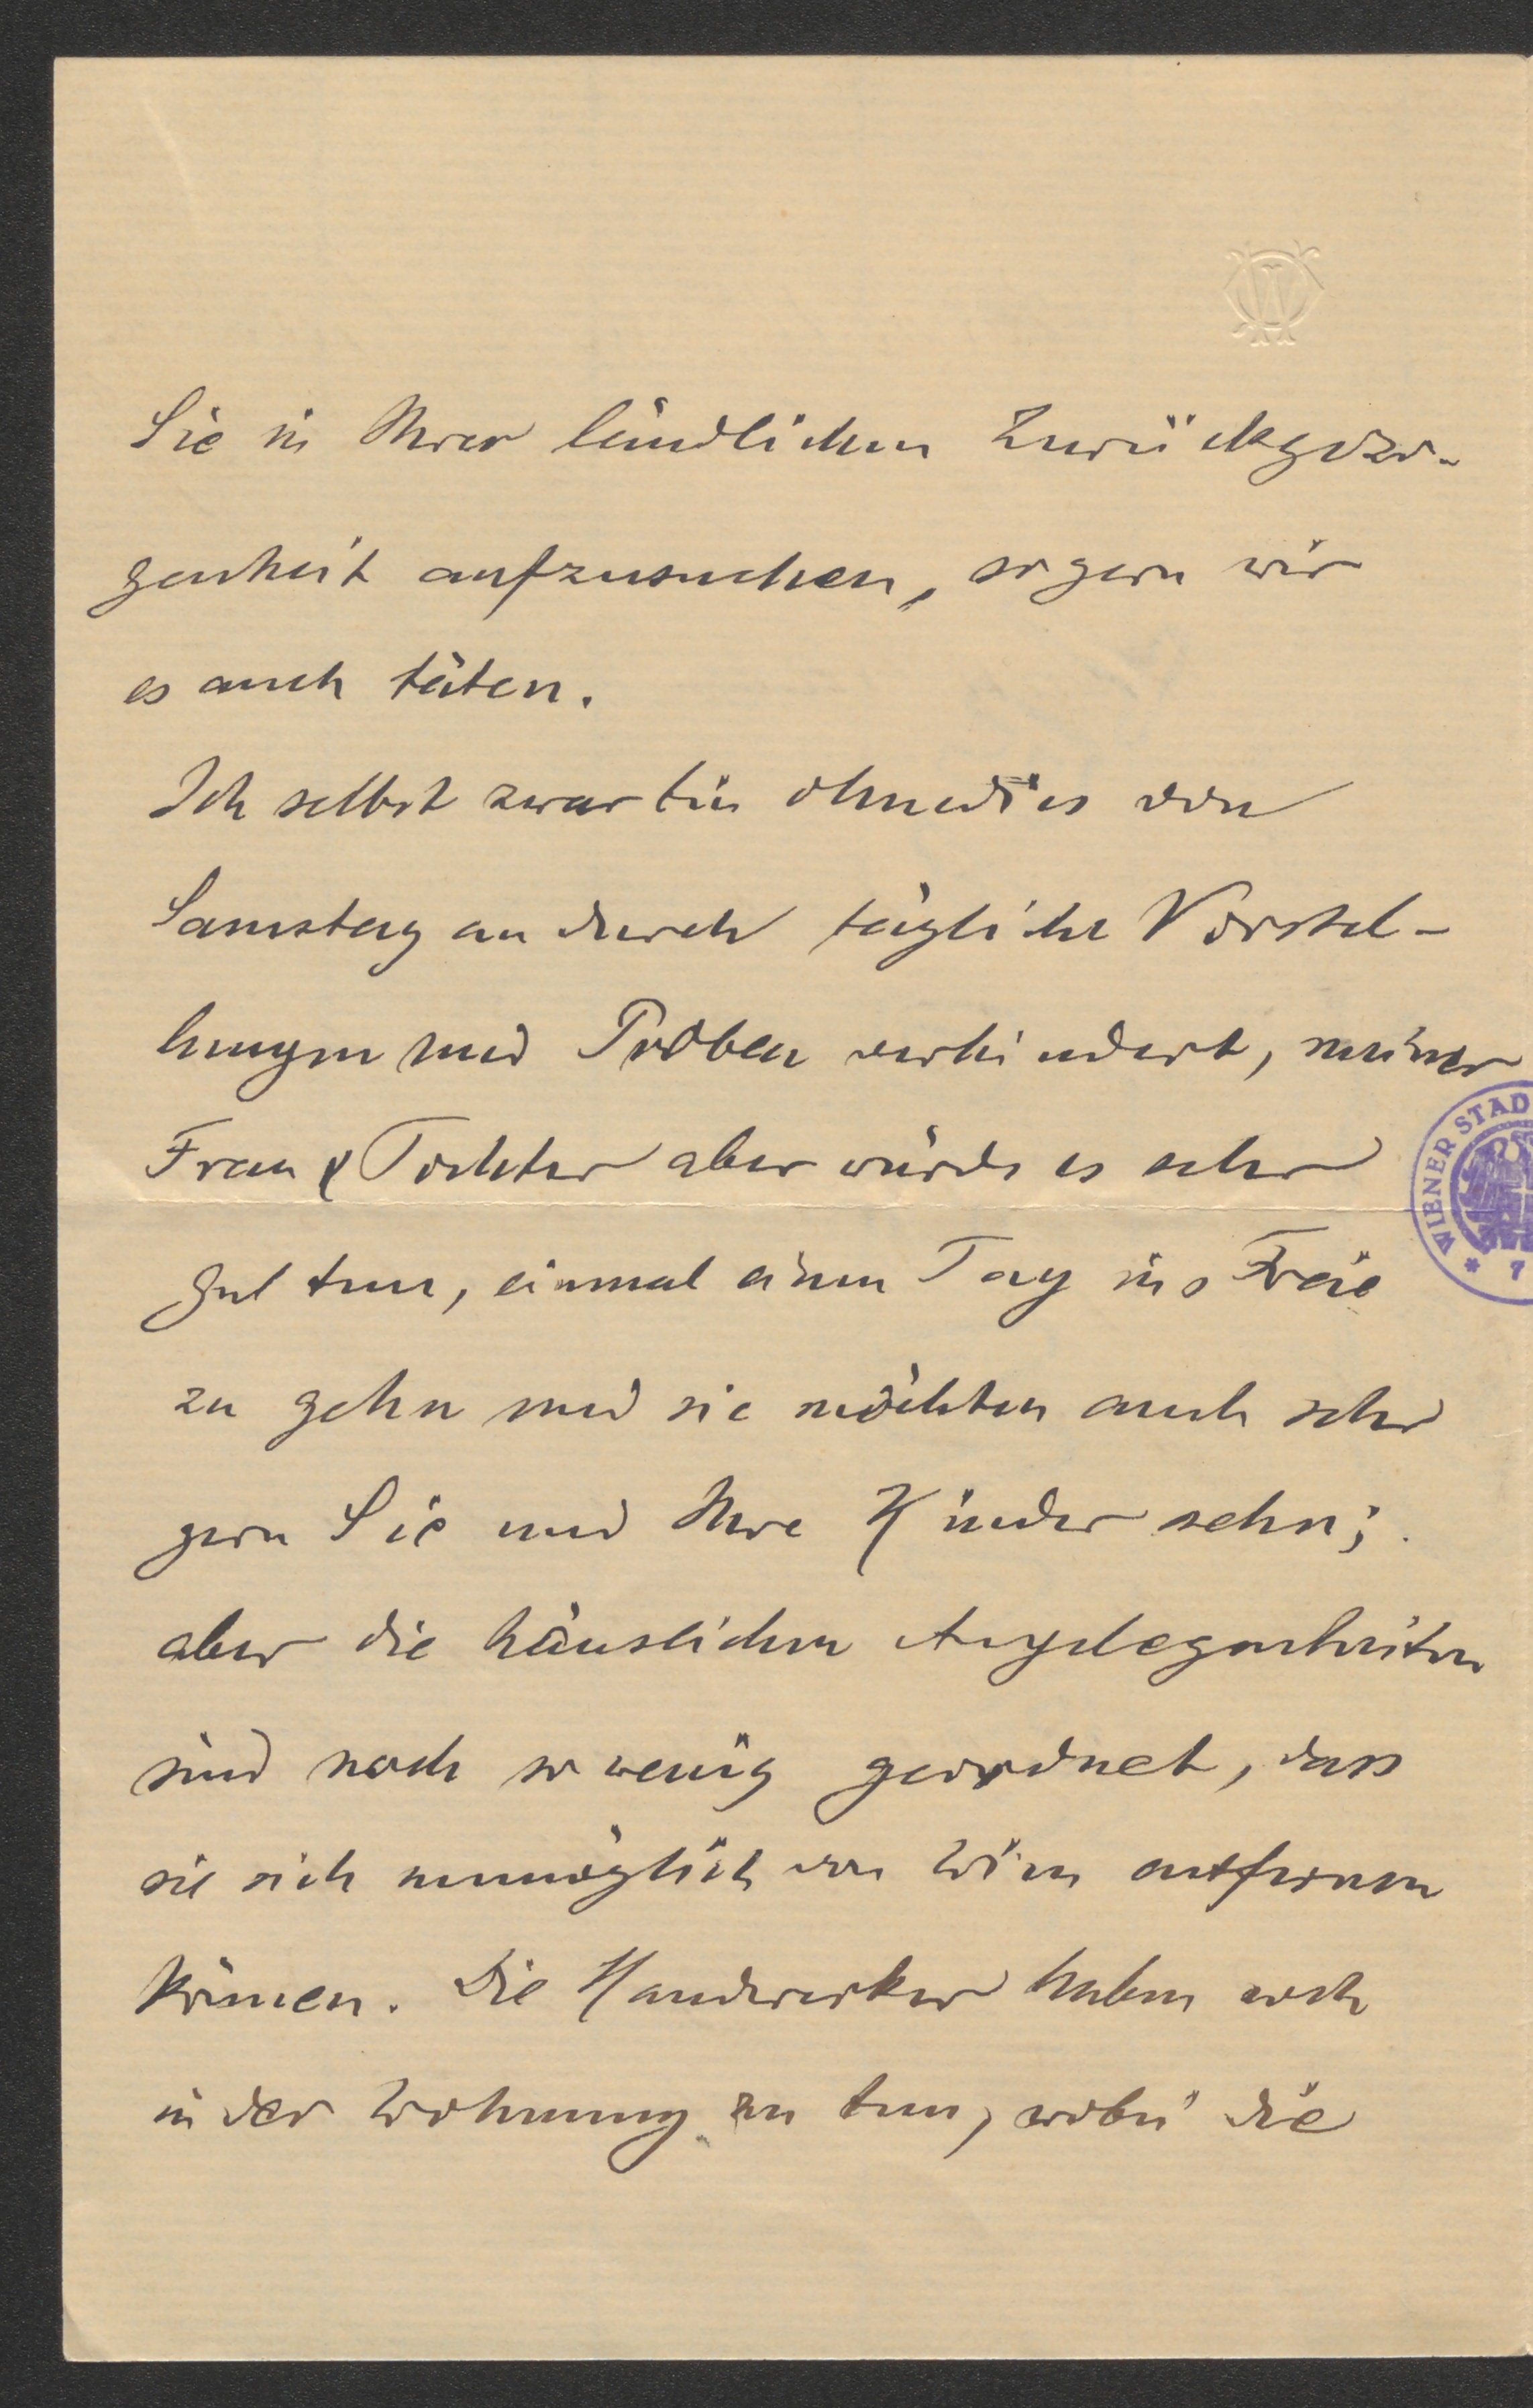 Sie in Ihrer ländlichen Zurückgezo-
genheit aufzusuchen, so gern wir
es auch täten.
Ich selbst zwar bin ohnedies von
Samstag an durch tägliche Vorstel-
lungen und Proben verhindert, meiner
Frau & Tochter aber würde es sehr
gut tun, einmal einen Tag ins Freie
zu gehn und sie möchten auch sehr
gern Sie und Ihre Kinder sehn;
aber die häuslichen Angelegenheiten
sind noch so wenig geordnet, dass
sie sich unmöglich von Wien entfernen
können. Die Handwerker haben noch
in der Wohnung zu tun, wobei die
WIENER STAD
* 7